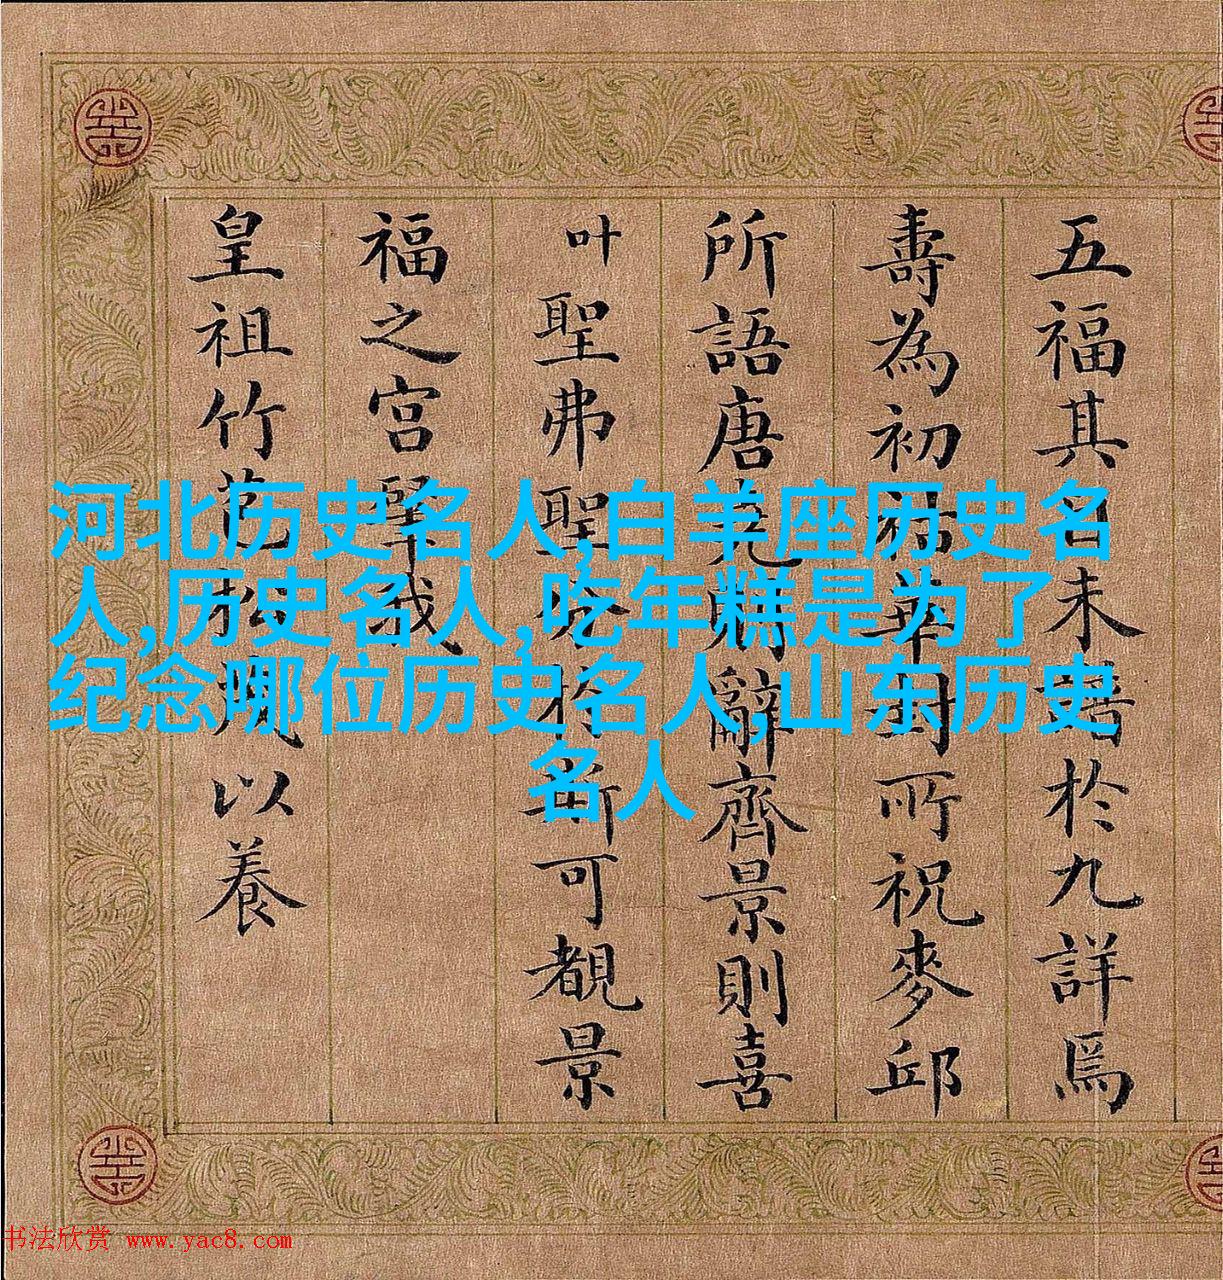 五福其目未於九詳焉
壽為初華封所祝麥邱
所語唐堯則辭齊景則喜
叶聖弗聖於斯可覩景
福之宮
皇祖竹苞松茂以養
河北历史名人,白羊座历史名
人,历史名人,吃年糕是为了
纪念哪位历史名人,山东历史
名人
书法欣赏 www.yac8.com